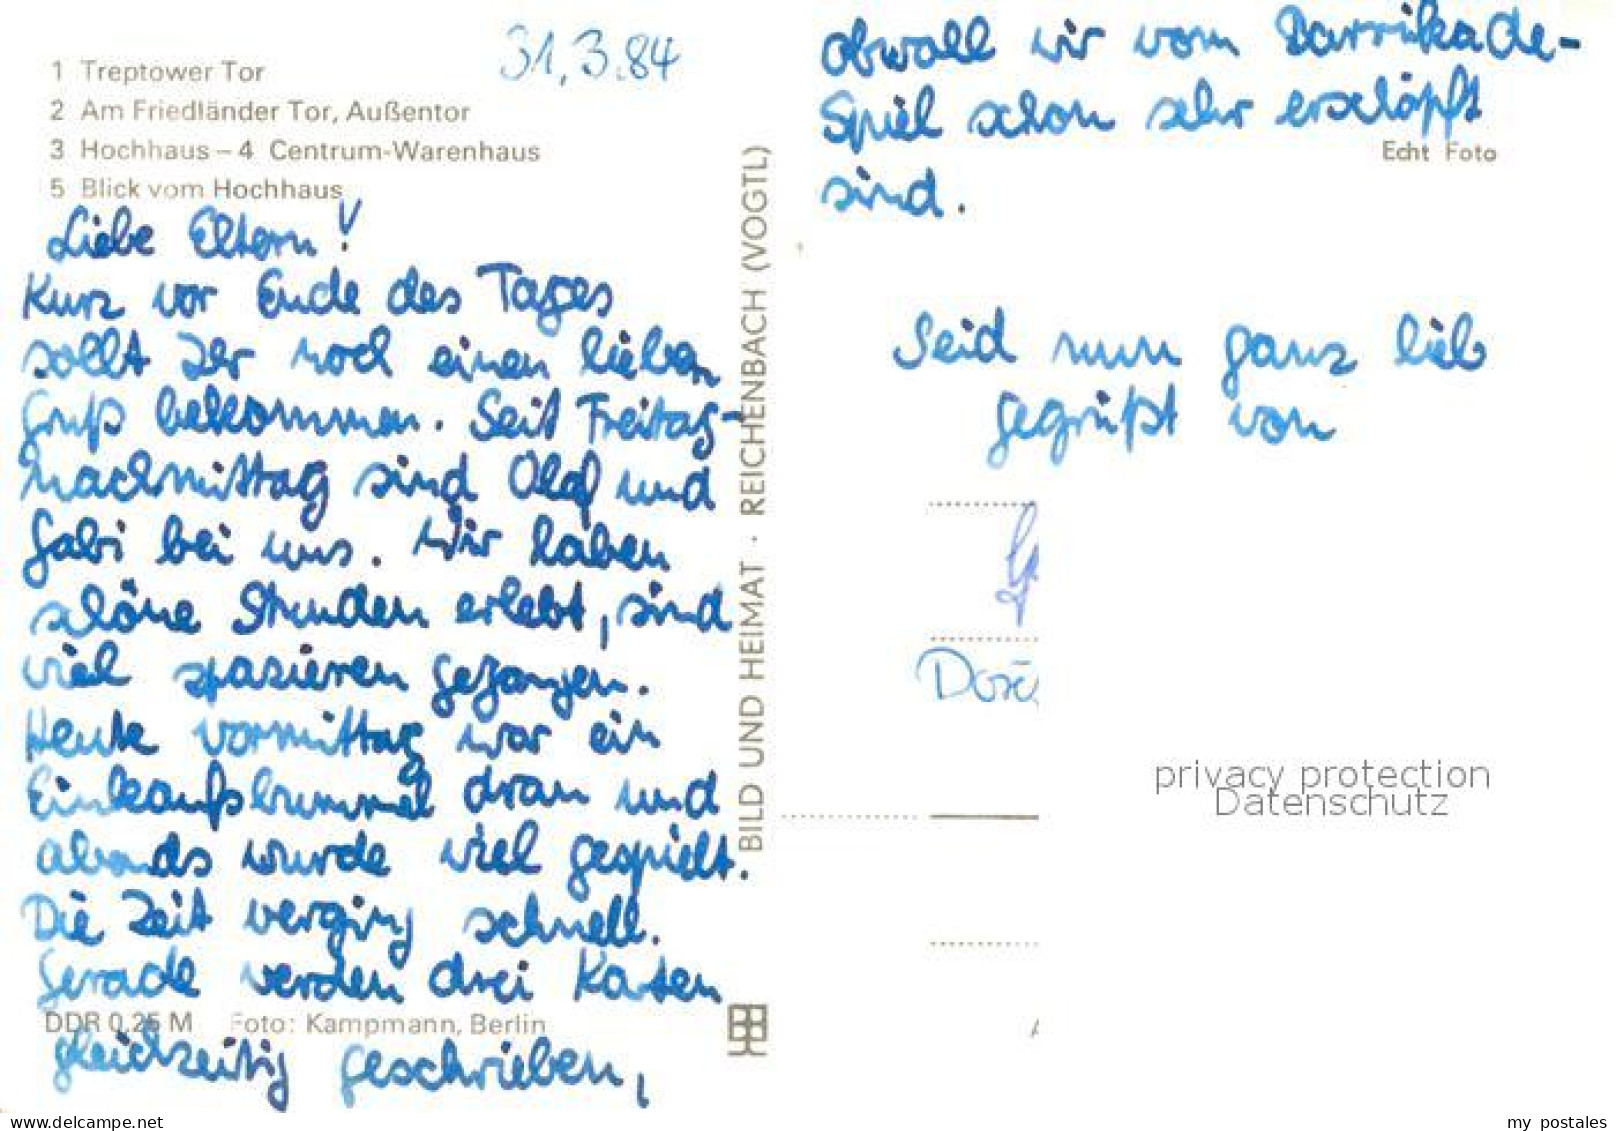 31.3.84
1 Treptower Tor
2 Am Friedländer Tor, Außentor
3 Hochhaus – 4 Centrum-Warenhaus
5 Blick vom Hochhaus
Liebe Eltern!
Kurz vor Ende des Tages
sollt Ihr noch einen lieben
Gruß bekommen. Seit Freitag-
nachmittag sind Olaf und
Gabi bei uns. Wir haben
schöne Stunden erlebt, sind
viel spazieren gegangen.
Heute vormittag war ein
Einkaufsbummel dran und
abends wurde viel gespielt.
Die Zeit verging schnell.
Gerade werden drei Karten
DDR 0,25 M Foto: Kampmann, Berlin
gleichzeitig geschrieben,
BILD UND HEIMAT · REICHENBACH (VOGTL)
obwohl wir vom Barrikade-
Spiel schon sehr erschöpft
Echt Foto
sind.
Seid nun ganz lieb
gegrüßt von
privacy protection
Datenschutz
www.delcampe.net
my_postales